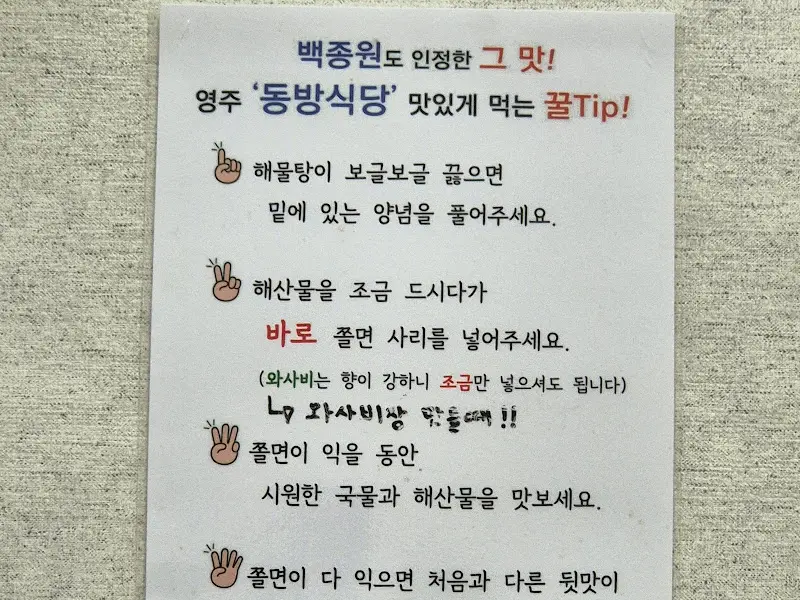 백종원도 인정한 그 맛!
영주 '동방식당' 맛있게 먹는 꿀Tip!
해물탕이 보글보글 끓으면
밑에 있는 양념을 풀어주세요.
해산물을 조금 드시다가
바로 쫄면 사리를 넣어주세요.
(와사비는 향이 강하니 조금만 넣으셔도 됩니다)
와사비장 만들때!!
쫄면이 익을 동안
시원한 국물과 해산물을 맛보세요.
쫄면이 다 익으면 처음과 다른 뒷맛이